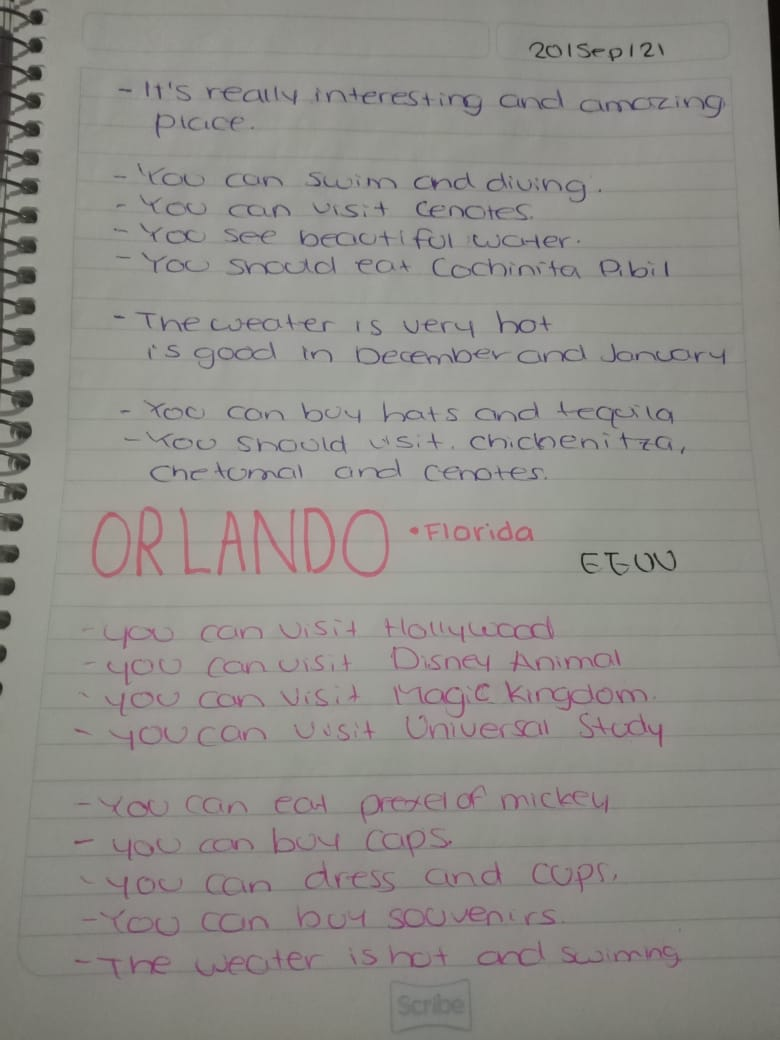 20/Sep/21
- It's really interesting and amazing
place.
- You can swim and diving.
- You can visit cenotes.
- You see beautiful water.
- You should eat Cochinita Pibil
- The weater is very hot
is good in December and January
- You can buy hats and tequila
- You should visit. chichenitza,
Chetumal and cenotes.
ORLANDO • Florida
EEUU
- you can visit Hollywood
- you can visit Disney Animal
- you can visit Magic Kingdom.
- you can visit Universal Study
- You can eat prexel of mickey
- you can buy caps.
- you can dress and cups.
- You can buy souvenirs.
- The weater is hot and swiming
Scribe